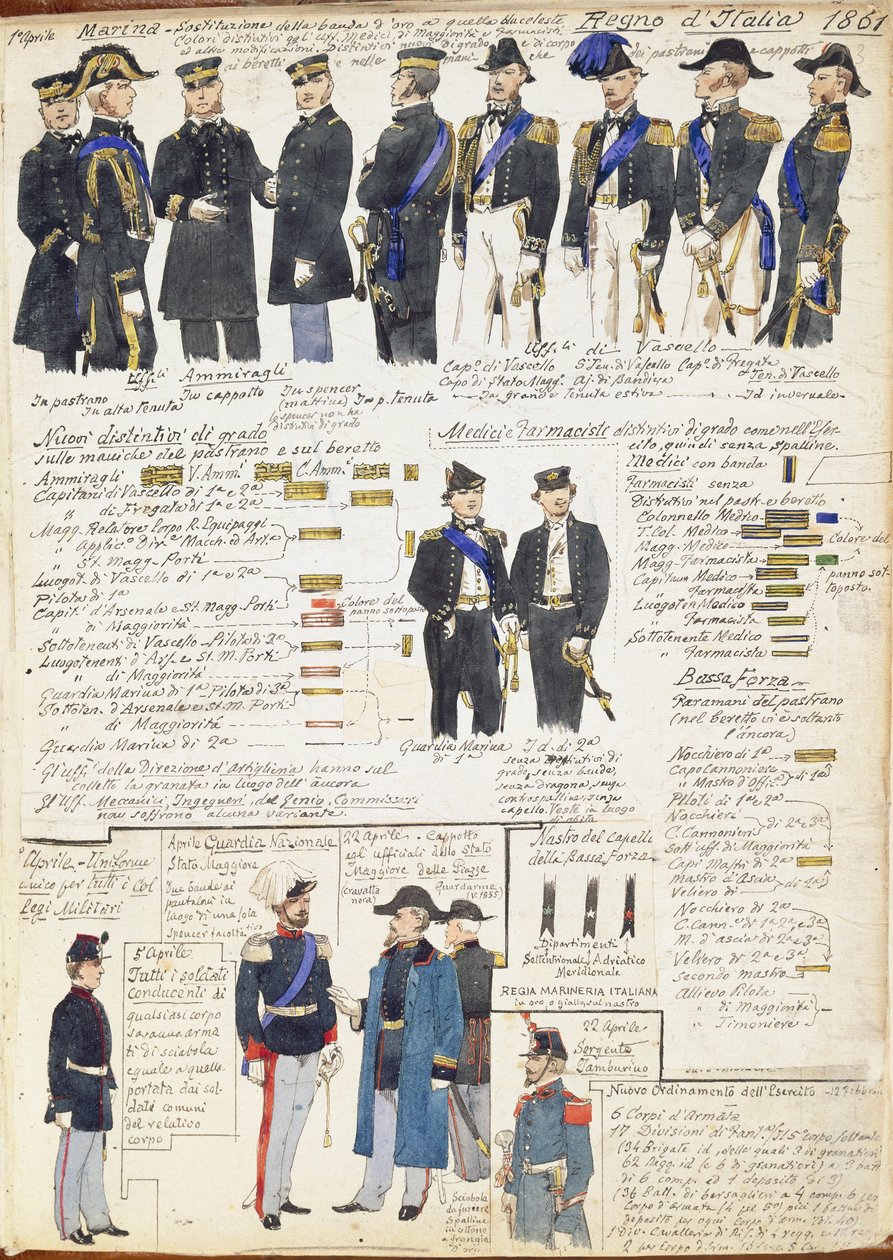 1° Aprile Marina - Sostituzione della banda d'oro a quella bluceleste Regno d'Italia 1861
Colori distintivi agl'Uff. Medici, di Maggiorità e Farmacisti
ed altre modificazioni. Distintivi nuovi di grado e di corpo dei pastrani e cappotti
ai beretti e nelle mani che
3
Uff.li Ammiragli
In pastrano
In alta tenuta
In cappotto
In spencer
(mattina)
lo spencer non ha
distintivi di grado
In p. tenuta
Uff.li di Vascello
Cap.° di Vascello
Capo di Stato Magg.e
S. Ten. di Vascello
Aj. di Bandiera
Cap.° di Fregata
Ten. di Vascello
In grande tenuta estiva
Id invernale
Nuovi distintivi di grado
sulle maniche del pastrano e sul beretto
Ammiragli V. Amm.i C. Amm.i
Capitani di Vascello di 1a e 2a
" di Fregata di 1a e 2a
Magg. Relatore Corpo R. Equipaggi
" Applic.° Dir.e Macch. ed Art.a
" St. Magg. Porti
Luogot. di Vascello di 1a e 2a
Pilota di 1a
Capit. d'Arsenale e St. Magg. Porti
" di Maggiorità
Colore del
panno sottoposto
Sottotenenti di Vascello - Pilota di 2a
Luogotenenti d'Ars.e e St. M. Porti
" di Maggiorità
Guardia Marina di 1a Pilota di 3a
Sottoten. d'Arsenale e St. M. Porti
" di Maggiorità
Guardia Marina di 2a
Gl'uff.i della Direzione d'Artiglieria hanno sul
colletto la granata in luogo dell'àncora
Gl'Uff. Meccanici, Ingegneri, del Genio, Commissari
non soffrono alcuna variante.
Medici e Farmacisti distintivi di grado come nell'Eser-
cito, quindi senza spalline.
Medici con banda
Farmacisti senza
Distintivi nel pastr. e beretto
Colonnello Medico
T. Col. Medico
Magg. Medico
Magg. Farmacista
Capitano Medico
" Farmacista
Luogoten Medico
" Farmacista
Sottotenente Medico
" Farmacista
Colore del
panno sot-
toposto.
Guardia Marina
di 1a
Id. di 2a
senza distintivi di
grado, senza banda,
senza dragona, senza
controspalline, senza
capello. Veste in luogo
di abito
Bassa Forza
Paramani del pastrano
(nel beretto vi è soltanto
l'àncora)
Nocchiero di 1a
Capo Cannoniere
" Mastro d'Offic.a di 1a
Piloti di 1a e 2a
Nocchieri
C. Cannonieri di 2a e 3a
Sott'uff. di Maggiorità
Capi Mastri di 2a
mastro d'Ascia
Veliero di
Nocchiero di 2a
C. Cann.e di 1a 2a e 3a
M. d'ascia di 2a e 3a
Veliero di 2a e 3a
Secondo mastro
Allievo Pilota
" di Maggiorità
" Timoniere
Nastro del Capello
della Bassa Forza
Dipartimenti
Settentrionale Adriatico
Meridionale
REGIA MARINERIA ITALIANA
in oro o giallo sul nastro
Aprile - Uniforme
unico per tutti i Col
legi Militari
5 Aprile.
Tutti i soldati
conducenti di
qualsiasi corpo
saranno arma
ti di sciabola
eguale a quella
portata dai sol-
dati comuni
del relativo
corpo
Aprile Guardia Nazionale
Stato Maggiore
Due bande ai
pantaloni in
luogo di una sola
Spencer facoltativo
22 Aprile - Cappotto
agl ufficiali dello Stato
Maggiore delle Piazze
(cravatta
nera)
Guardarme
(V. 1855)
Sciabola
da furiere
Spalline
in ottone
e frangia
d'oro
22 Aprile
Sergente
Tamburino
Nuovo Ordinamento dell'Esercito
6 Corpi d'Armata
17 Divisioni di Fant.a
(34 Brigate id, delle quali 3 di granatieri
62 Regg. id (e 6 di granatieri) a 3 batt
di 6 comp. ed 1 deposito di 3)
(36 Batt. di bersaglieri a 4 comp. 6 per
corpo d'armata
deposito per ogni Corpo d'Arm.